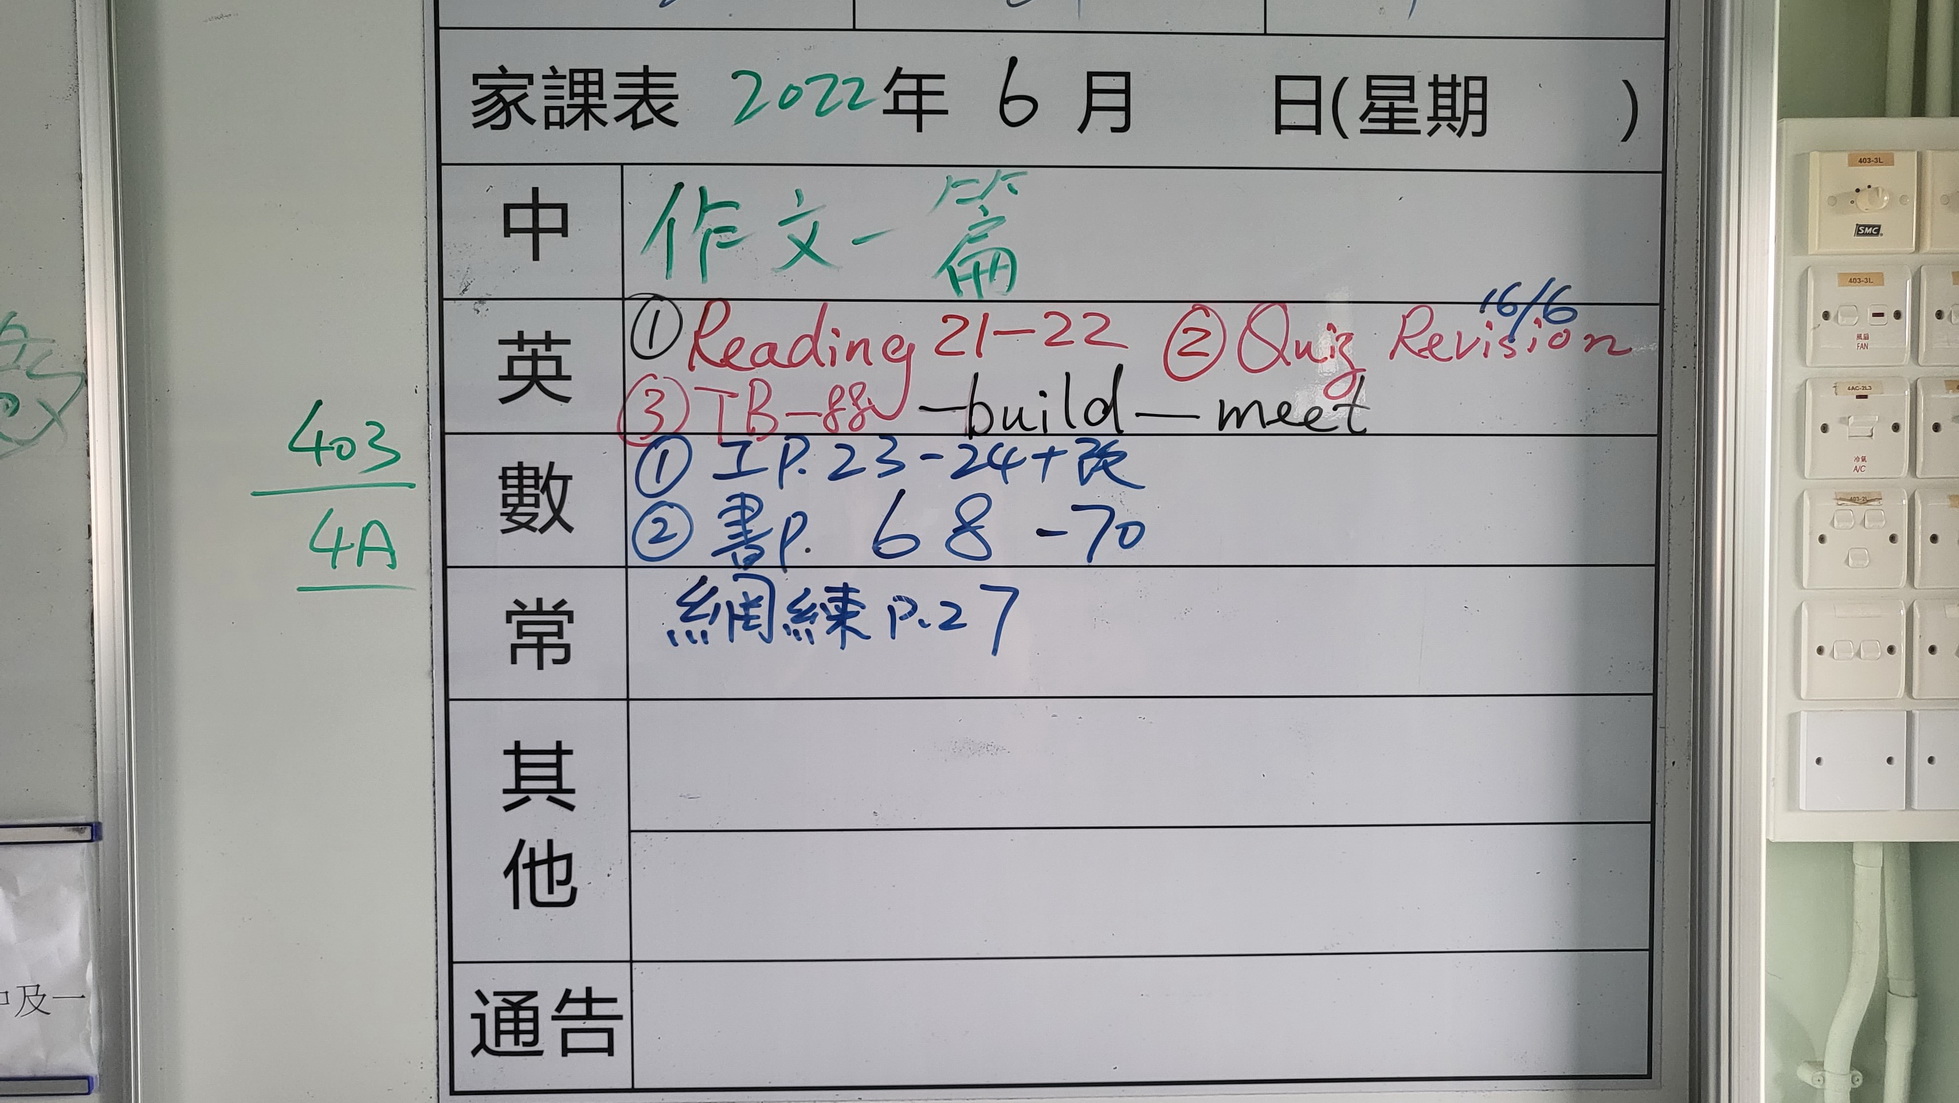 家課表 2022年 6 月 日(星期 )
中 作文一篇
16/6
英 ①Reading 21-22 ②Quiz Revision
③TB-88 -build-meet
數 ①工P.23-24+改
②書P. 68-70
常 網練P.27
其他
通告
403
4A
中及一
403-3L
SMC
403-3L
風扇
FAN
冷氣
A/C